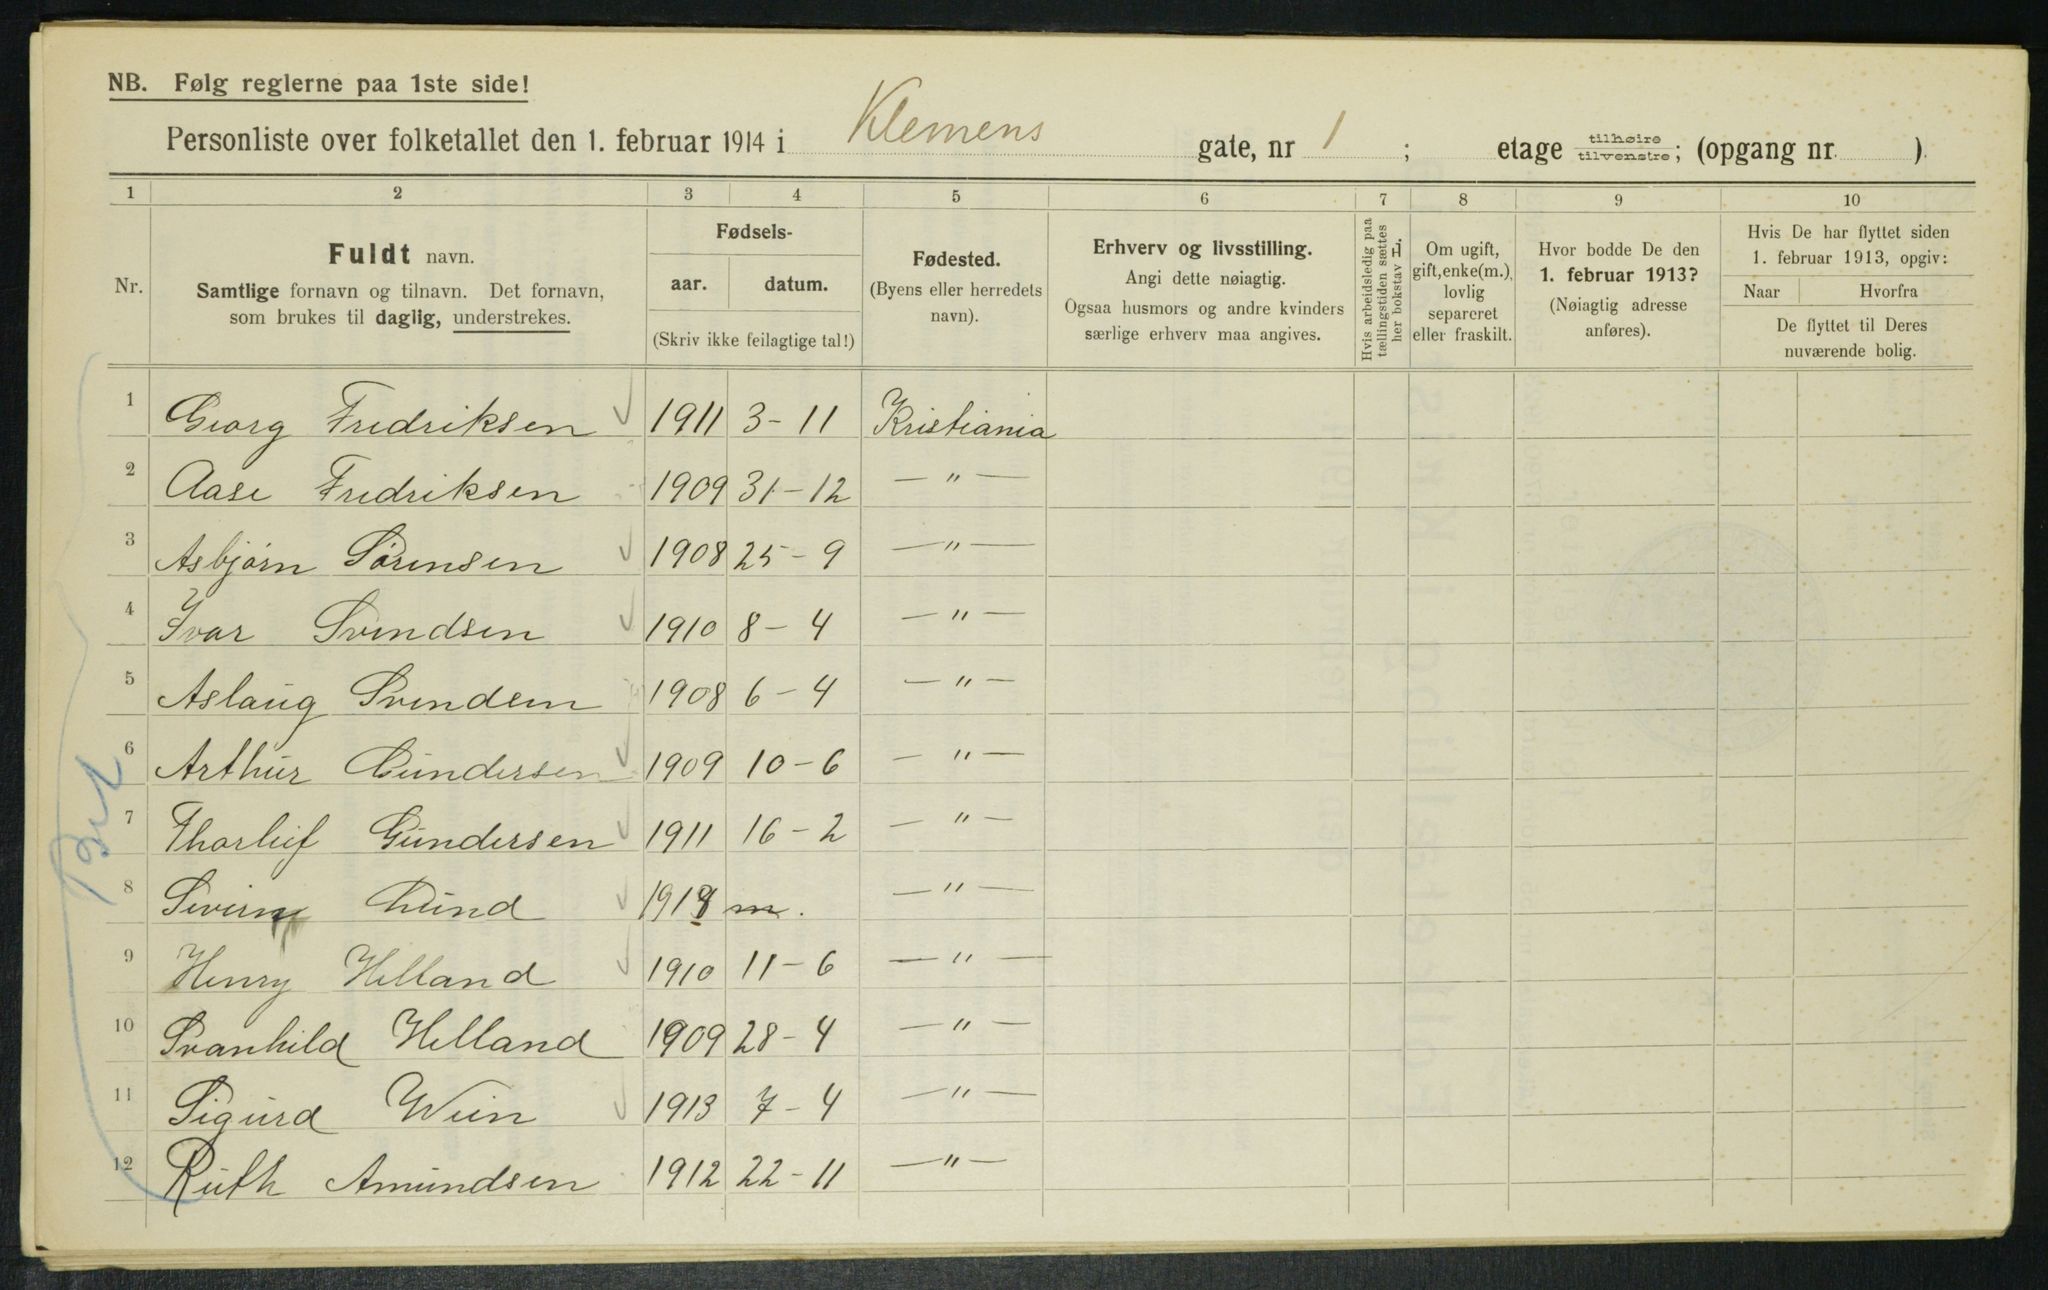 NB. Følg reglerne paa 1ste side!
Personliste over folketallet den 1. februar 1914 i Klemens gate, nr 1 ; etage tilhøire tilvenstre; (opgang nr. )
1 2 3 4 5 6 7 8 9 10
Nr.
Fuldt navn.
Samtlige fornavn og tilnavn. Det fornavn,
som brukes til daglig, understrekes.
Fødsels-
aar. datum.
(Skriv ikke feilagtige tal!)
Fødested.
(Byens eller herredets
navn).
Erhverv og livsstilling.
Angi dette nøiagtig.
Ogsaa husmors og andre kvinders
særlige erhverv maa angives.
Hvis arbeidsledig paa
tællingstiden sættes
her bokstav L
Om ugift,
gift, enke(m.),
lovlig
separeret
eller fraskilt.
Hvor bodde De den
1. februar 1913?
(Nøiagtig adresse
anføres).
Hvis De har flyttet siden
1. februar 1913, opgiv:
Naar Hvorfra
De flyttet til Deres
nuværende bolig.
1 Georg Fredriksen 1911 3-11 Kristiania
2 Aase Fredriksen 1909 31-12 —"—
3 Asbjørn Sørensen 1908 25-9 —"—
4 Ivar Svendsen 1910 8-4 —"—
5 Aslaug Svendsen 1908 6-4 —"—
6 Arthur Gundersen 1909 10-6 —"—
7 Thorleif Gundersen 1911 16-2 —"—
8 Lund m. —"—
9 Henry Helland 1910 11-6 —"—
10 Svanhild Helland 1909 28-4 —"—
11 Sigurd Wiin 1913 7-4 —"—
12 Ruth Amundsen 1912 22-11 —"—